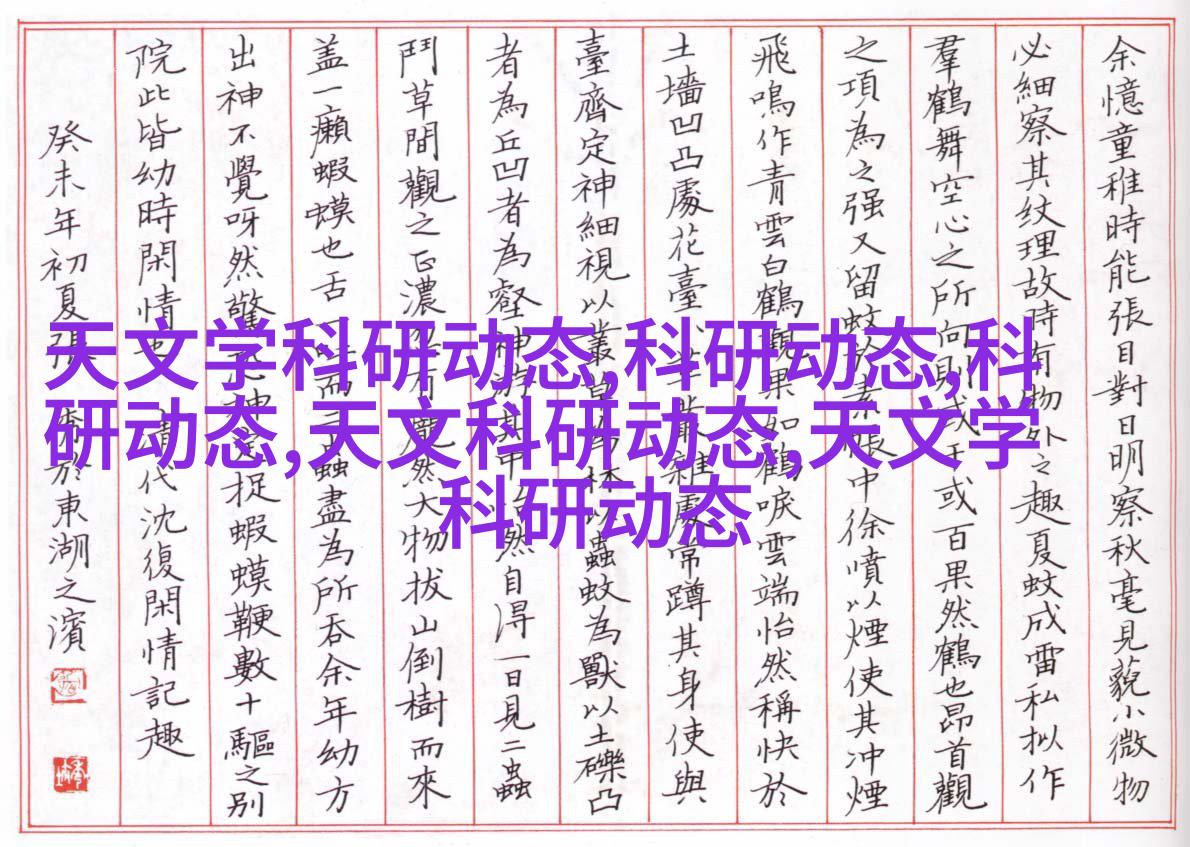 余憶童稚時能張目對日明察秋毫見藐小微物
必細察其纹理故時有物外之趣夏蚊成雷私拟作
羣鶴舞空心之所向則或千或百果然鶴也昂首觀
之項為之强又留蚊於素帳中徐噴以煙使其冲煙
飛鳴作青雲白鶴觀果如鶴唳雲端怡然稱快於
土墻凹凸處花臺小草叢雜處常蹲其身使與
臺齊定神細視以叢草為林以蟲蚊為獸以土礫凸
者為丘凹者為壑神游其中怡然自得一日見二蟲
鬥草間觀之正濃忽有龐然大物拔山倒樹而來
盖一癩蝦蟆也舌一吐而二蟲盡為所吞余年幼方
出神不覺呀然驚恐神定捉蝦蟆鞭數十驅之别
院此皆幼時閑情也 清代沈復閑情記趣
癸未年初夏張於東湖之濱
天文学科研动态,科研动态,科
研动态,天文科研动态,天文学
科研动态